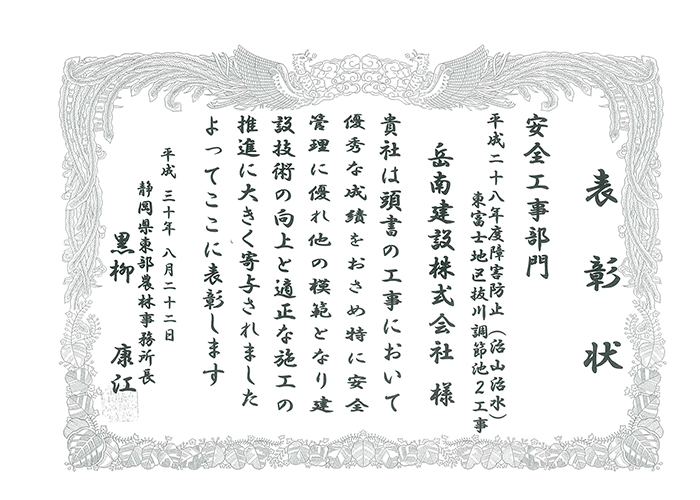 表彰状
安全工事部門
平成二十八年度障害防止（治山治水）
東富士地区抜川調節池2工事
岳南建設株式会社 様
貴社は頭書の工事において
優秀な成績をおさめ特に安全
管理に優れ他の模範となり建
設技術の向上と適正な施工の
推進に大きく寄与されました
よってここに表彰します
平成 三十年 八月二十二日
静岡県東部農林事務所長
黒柳 康江